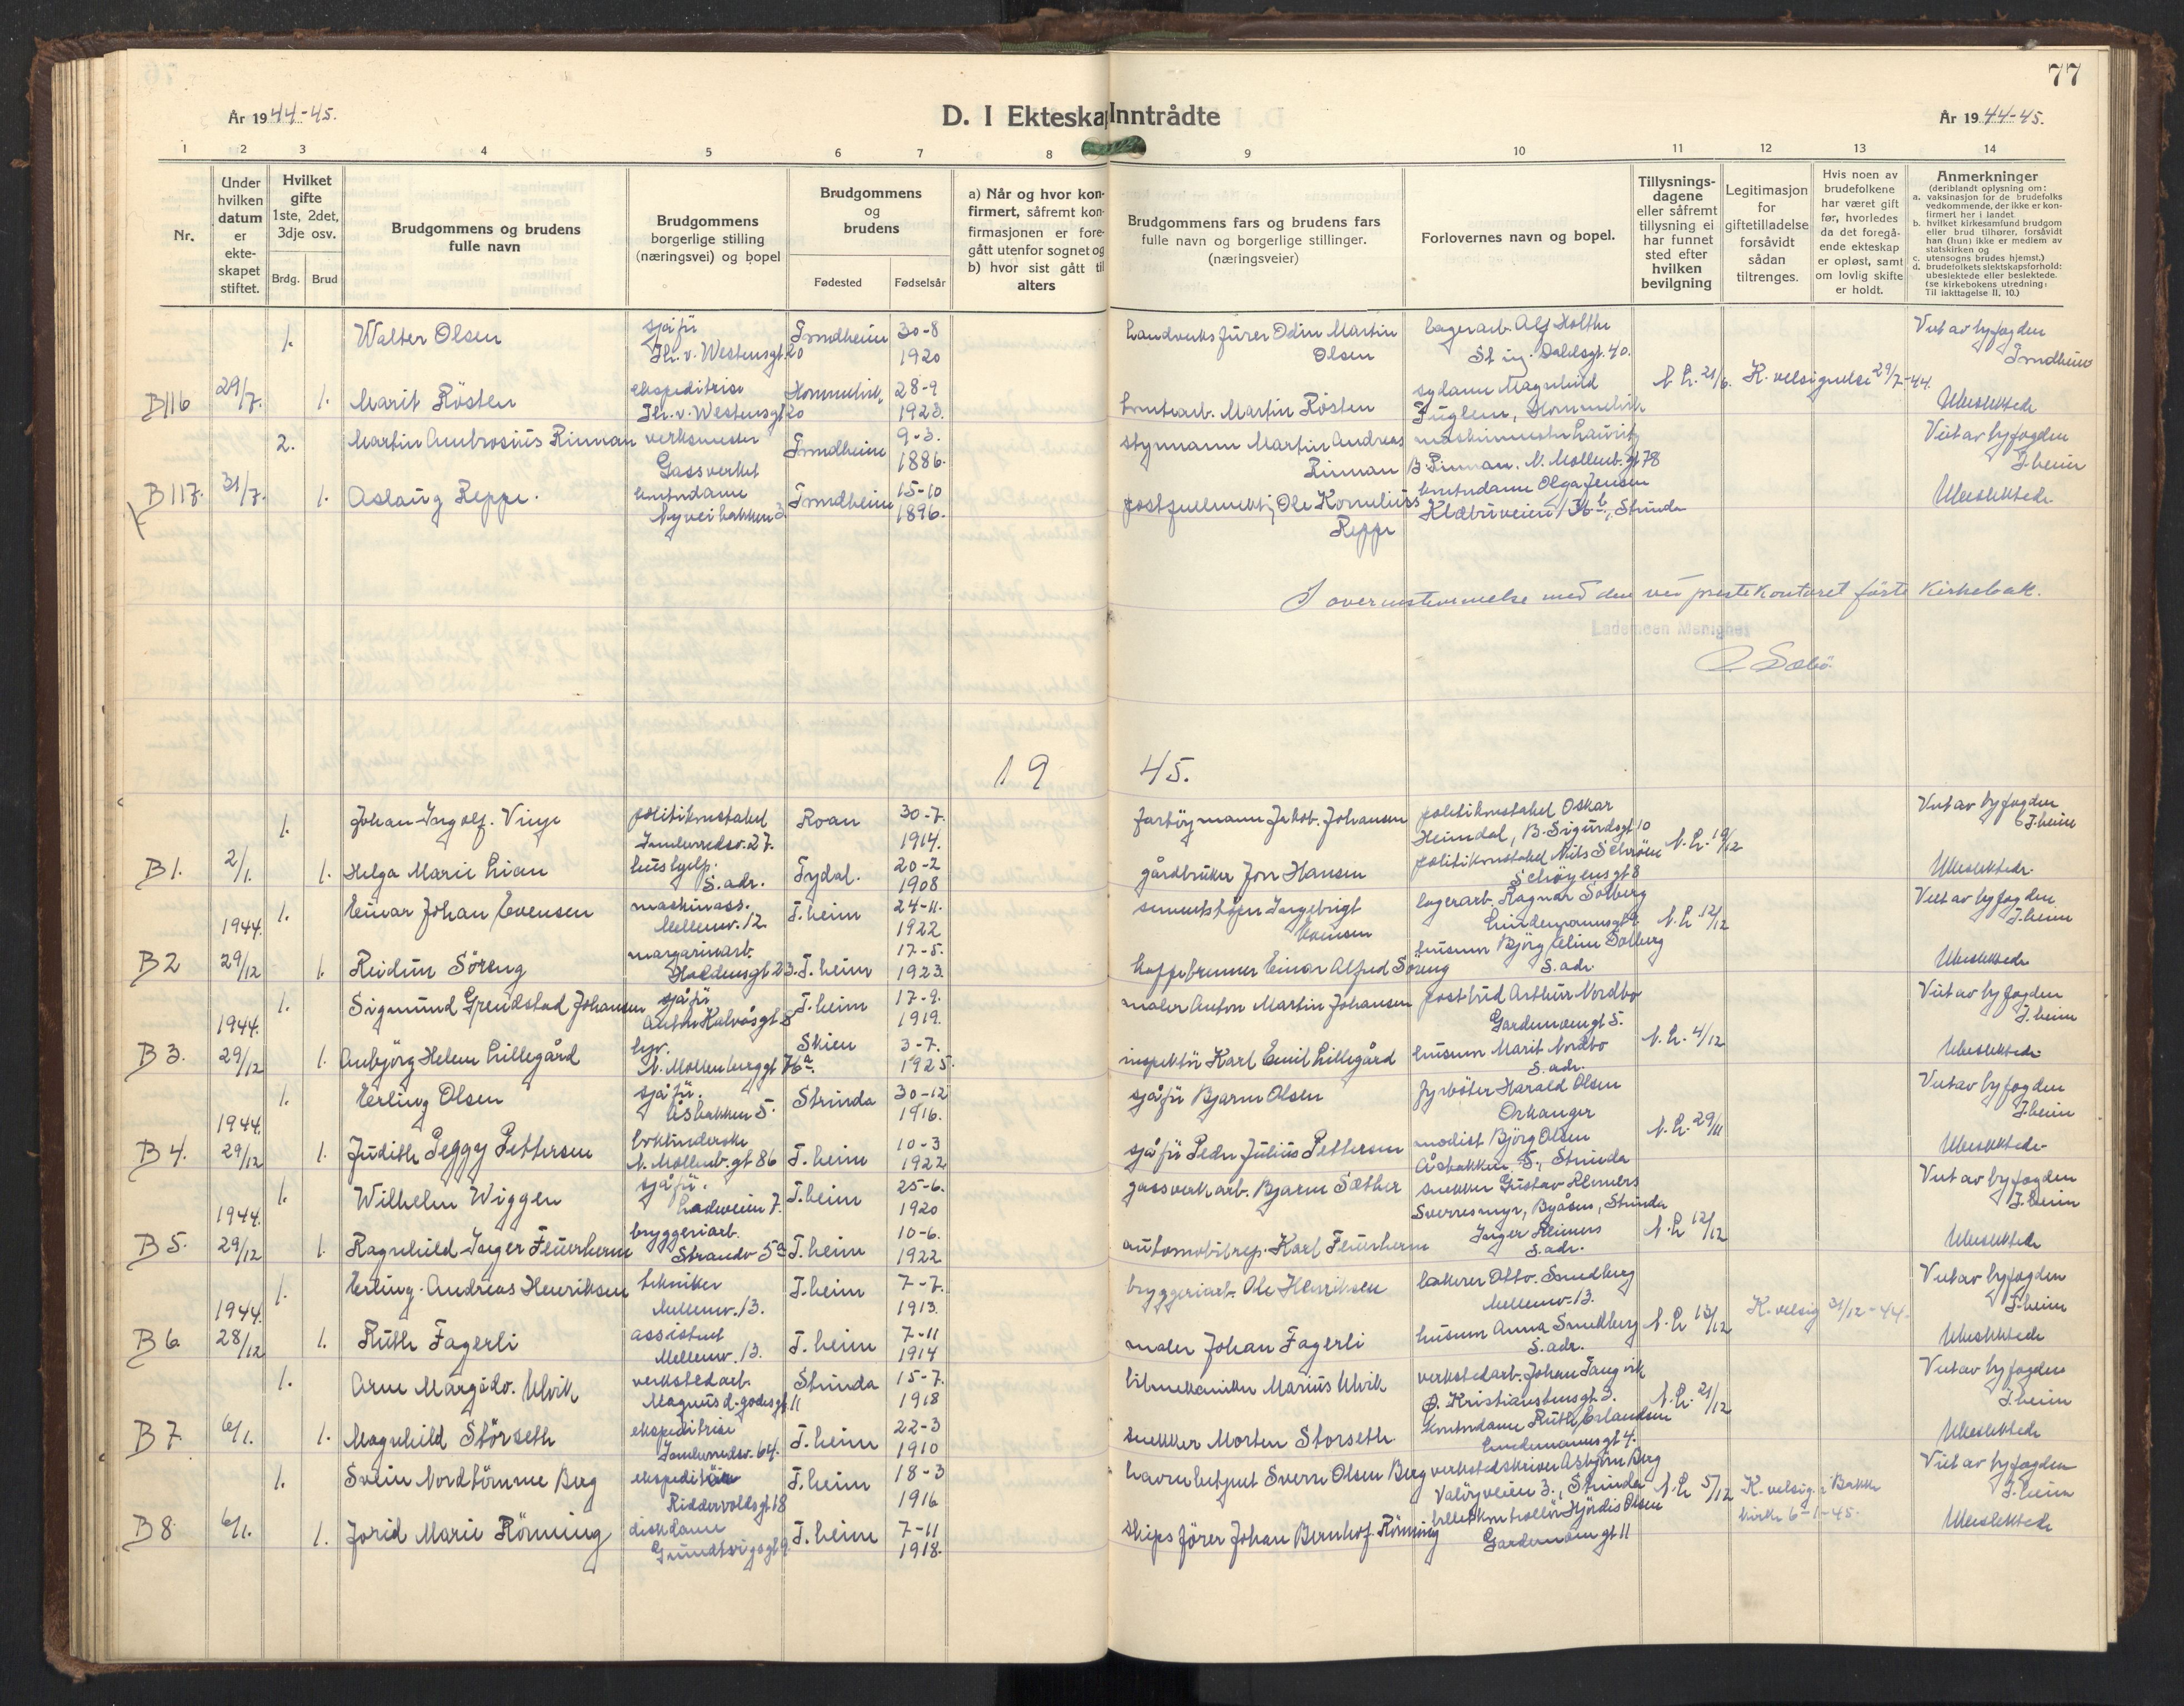 77
År 1944-45.
D. I Ekteskap Inntrådte
År 1944-45.
1 2 3 4 5 6 7 8 9 10 11 12 13 14
Nr.
Under hvilken datum er ekteskapet stiftet.
Hvilket gifte 1ste, 2det, 3dje osv.
Brdg. Brud
Brudgommens og brudens fulle navn
Brudgommens borgerlige stilling (næringsvei) og bopel
Brudgommens og brudens
Fødested Fødselsår
a) Når og hvor konfirmert, såfremt konfirmasjonen er foregått utenfor sognet og
b) hvor sist gått til alters
Brudgommens fars og brudens fars fulle navn og borgerlige stillinger. (næringsveier)
Forlovernes navn og bopel.
Tillysningsdagene eller såfremt tillysning ei har funnet sted efter hvilken bevilgning
Legitimasjon for giftetilladelse forsåvidt sådan tiltrenges.
Hvis noen av brudefolkene har været gift før, hvorledes da det foregående ekteskap er opløst, samt om lovlig skifte er holdt.
Anmerkninger
(deriblandt oplysning om:
a. vaksinasjon for de brudefolks vedkommende, der ikke er konfirmert her i landet
b. hvilket kirkesamfund brudgom eller brud tilhører, forsåvidt han (hun) ikke er medlem av statskirken og
c. utensogns brudes hjemst.)
d. brudefolkets slektskapsforhold: ubeslektede eller beslektede.
(se kirkebokens utredning: Til iakttagelse II, 10.)
1. Walter Olsen sjåfør Trondheim 30-8 handverksfører Odin Martin lagerarb. Alf Holthe Viet av byfogden
Th. v. Westensgt. 20 1920 Olsen Dahlsgt. 40. Trondheim
B116 29/7. 1. Marit Rösten ekspeditrise Hommelvik 28-9 Martin Rösten sydame Magnhild N. L. 21/6. K. velsignelse 29/7-44. Ubeslektede
Th. v. Westensgt 20 1923. Fuglem, Hommelvik
2. Martin Ambrosius Rinnan verksmester Trondheim 9-3. styrmann Martin Andreas maskinmester Lauritz Viet av byfogden
Gassverket 1886. Rinnan B. Rinnan. N. Mollenb. gt 78 T.heim
B117. 31/7. 1. Aslaug Reppe. kontordame Trondheim 15-10 Ole Kornelius kontordame Olga Jensen Ubeslektede
Nyveibakken 3 1896. Reppe Klæbuveien, Strinda
I overenstemmelse med den ved prestekontoret førte kirkebok.
Lademoen Menighet
Sæbø
1945.
1. Johan Ingolf. Vinje politikonstabel Roan 30-7. Jakob. Johansen politikonstabel Oskar Viet av byfogden
Innherredsv. 27. 1914. Heimdal, B. Sigurdsgt 10 N. L. 19/12 T.heim
B1. 2/1. 1. Helga Marie Lian hushjelp. Tydal. 20-2 gårdbruker Jon Hansen politikonstabel Nils Schröen Ubeslektede
S. adr. 1908 Schøyensgt 8
1. Einar Johan Evensen maskinass. T.heim 24-11. Ingebrigt lagerarb. Ragnar Solberg Viet av byfogden
1944. Mellemv. 12. 1922 Evensen Lindemannsgt N. L. 12/12 T.heim
B2 29/12 1. Reidun Söreng margarinarb. T.heim 17-5. kaffebrenner Einar Alfred Söreng husmor Björg Solberg Ubeslektede
23. 1923. S. adr.
1. Sigmund Grendstad Johansen sjåfør T.heim 17-9. maler Anton Martin Johansen postbud Arthur Nordbo Viet av byfogden
1944. Anth. Kalvåsgt 5 1919. Gardemoengt 5. T.heim
B3. 29/12 1. Anbjörg Helene Lillegård Skien 3-7. inspektör Karl Emil Lillegård husmor Marit Nordbo N. L. 4/12 Ubeslektede
N. Mollenberggt 76a. 1925. S. adr.
1. Erling Olsen sjåfør. Strinda 30-12 sjåfør Bjarne Olsen fyrbøter Harald Olsen Viet av byfogden
1944. Åsbakken 5. 1916. Orkanger T.heim
B4. 29/12 1. Judith Peggy Pettersen T.heim 10-3 sjåfør Peder Julius Pettersen modist Björg Olsen N. L. 29/11 Ubeslektede
N. Mollenb. gt 86 1922 Åsbakken 5., Strinda
1. Wilhelm Wiggen sjåfør. T.heim 25-6. gassverkarb. Bjarne Sæther snekker Gustav Reimers Viet av byfogden
1944. Ladeveien 7. 1920 Sverresmyr, Byåsen, Strinda T.heim
B5. 29/12 1. Ragnhild Inger Feuerherm bryggeriarb. T.heim 10-6. automobilrep. Karl Feuerherm Inger Reimers N. L. 12/12 Ubeslektede
Strandv 5a 1922 S. adr.
1. Erling Andreas Henriksen tekniker T.heim 7-7. bryggeriarb. Ole Henriksen bakerer Otto. Smedberg Viet av byfogden
1944. Mellemv. 13. 1913. Mellemv. 13. T.heim
B6. 28/12 1. Ruth Fagerli assistent T.heim 7-11 maler Johan Fagerli husmor Anna Smedberg N. L. 13/12 K. velsig 31/12-44. Ubeslektede
Mellemv. 13. 1914 S. adr.
1. Arne Margido. Ulvik verkstedarb. Strinda 15-7. bilmekaniker Marius Ulvik verkstedarb. Johan Tangvik Viet av byfogden
Magnus d. godesgt. 11 1918 Ø. Kristianstensgt 3. N. L. 21/12 T.heim
B7. 6/1. 1. Magnhild Störseth ekspeditrise T.heim 22-3 snekker Morten Storseth kontordame Ruth Erlandsen Ubeslektede
Innherredsv. 64. 1910 Lindemannsgt 4.
1. Svein Nordtömme Berg ekspeditör T.heim 18-3 havnebetjent Sverre Olsen Berg verkstedskriver Asbjörn Berg Viet av byfogden
Riddervoldsgt 18 1916 3., Strinda N. L. 5/12 K. velsig. i Bakke T.heim
B8. 6/1. 1. Jorid Marie Rönning diskdame T.heim 7-11 skipsförer Johan Bernhof. Rönning billettkontrollör Hjördis Olsen kirke 6-1-45. Ubeslektede
Grundtvigsgt 9. 1918. Gardemoengt 11